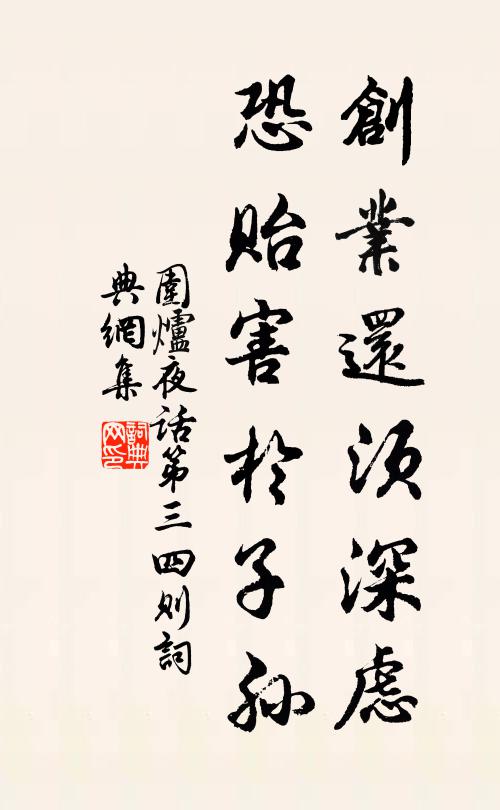 創業還須深慮
恐貽害於子孫
圍爐夜話第三四則詞
典網集
詞典
网印